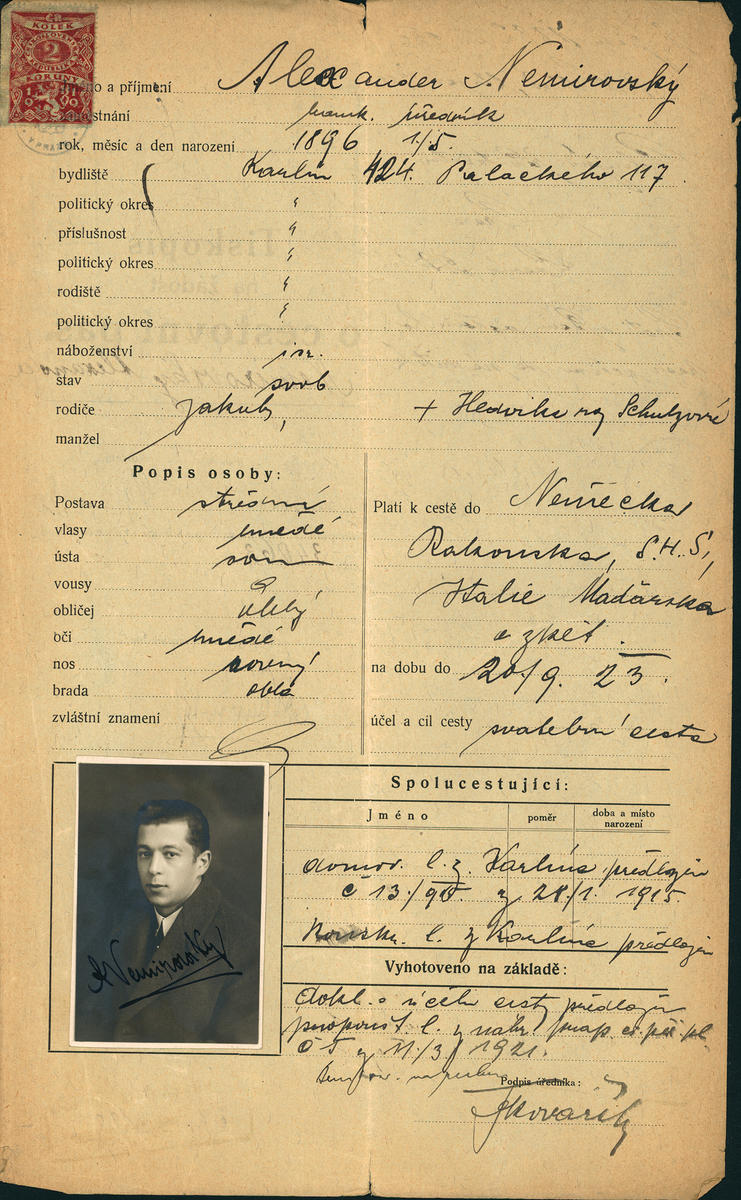 ČR
KOLEK
2
KORUNY
jméno a příjmení Alexander Nemirovský
zaměstnání bank. úředník
rok, měsíc a den narození 1896 1/5.
bydliště Karlín 424. Palackého 117
politický okres "
příslušnost "
politický okres "
rodiště "
politický okres "
náboženství isr.
stav svob
rodiče Jakub, + Hedvika roz Schulzové
manžel
Popis osoby:
Postava střední
vlasy hnědé
ústa
vousy
obličej oblý
oči hnědé
nos rovný
brada oblá
zvláštní znamení
Platí k cestě do Německa
Rakouska, S.H.S,
Italie Maďarska
a zpět.
na dobu do 20/9. 23.
účel a cíl cesty svatební cesta
Spolucestující:
Jméno poměr doba a místo narození
domov. l. z Karlína předložen
č 13/ z 28/1. 1915.
l. z Karlína předložen
Vyhotoveno na základě:
dokl. o účelu cesty předložen
propoušt. l. z
z 11/3 1921.
Podpis úředníka:
Kovařík
A Nemirovský